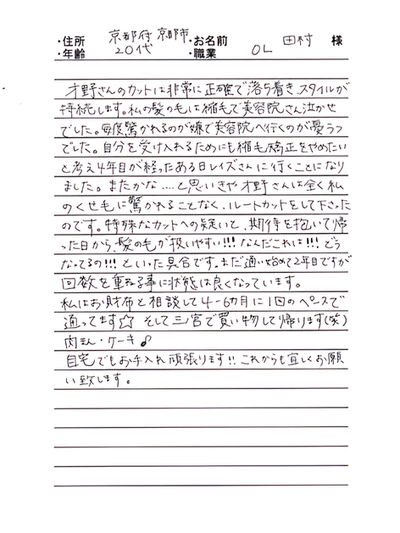 ・住所 京都府京都市 ・お名前 田村 様
・年齢 20代 ・職業 OL
才野さんのカットは非常に正確で落ち着き、スタイルが
持続します。私の髪の毛は縮毛で美容院さん泣かせ
でした。毎度驚かれるのが嫌で美容院へ行くのが憂うつ
でした。自分を受け入れるためにも縮毛矯正をやめたい
と考え4年目が経ったある日レイズさんに行くことになり
ました。またかな....と思いきや才野さんは全く私
のくせ毛に驚かれることなく、ルートカットをして下さった
のです。特殊なカットへの驚いと、期待を抱いて帰
った日から、髪の毛が扱いやすい!!!なんだこれは!!!どう
なってるの!!!といった具合です。まだ通い始めて2年目ですが
回数を重ねる事に状態は良くなっています。
私はお財布と相談して4-6カ月に1回のペースで
通ってます☆ そして三宮で買い物して帰ります(笑)
肉まん・ケーキ♪
自宅でもお手入れ頑張ります!!これからも宜しくお願
い致します。